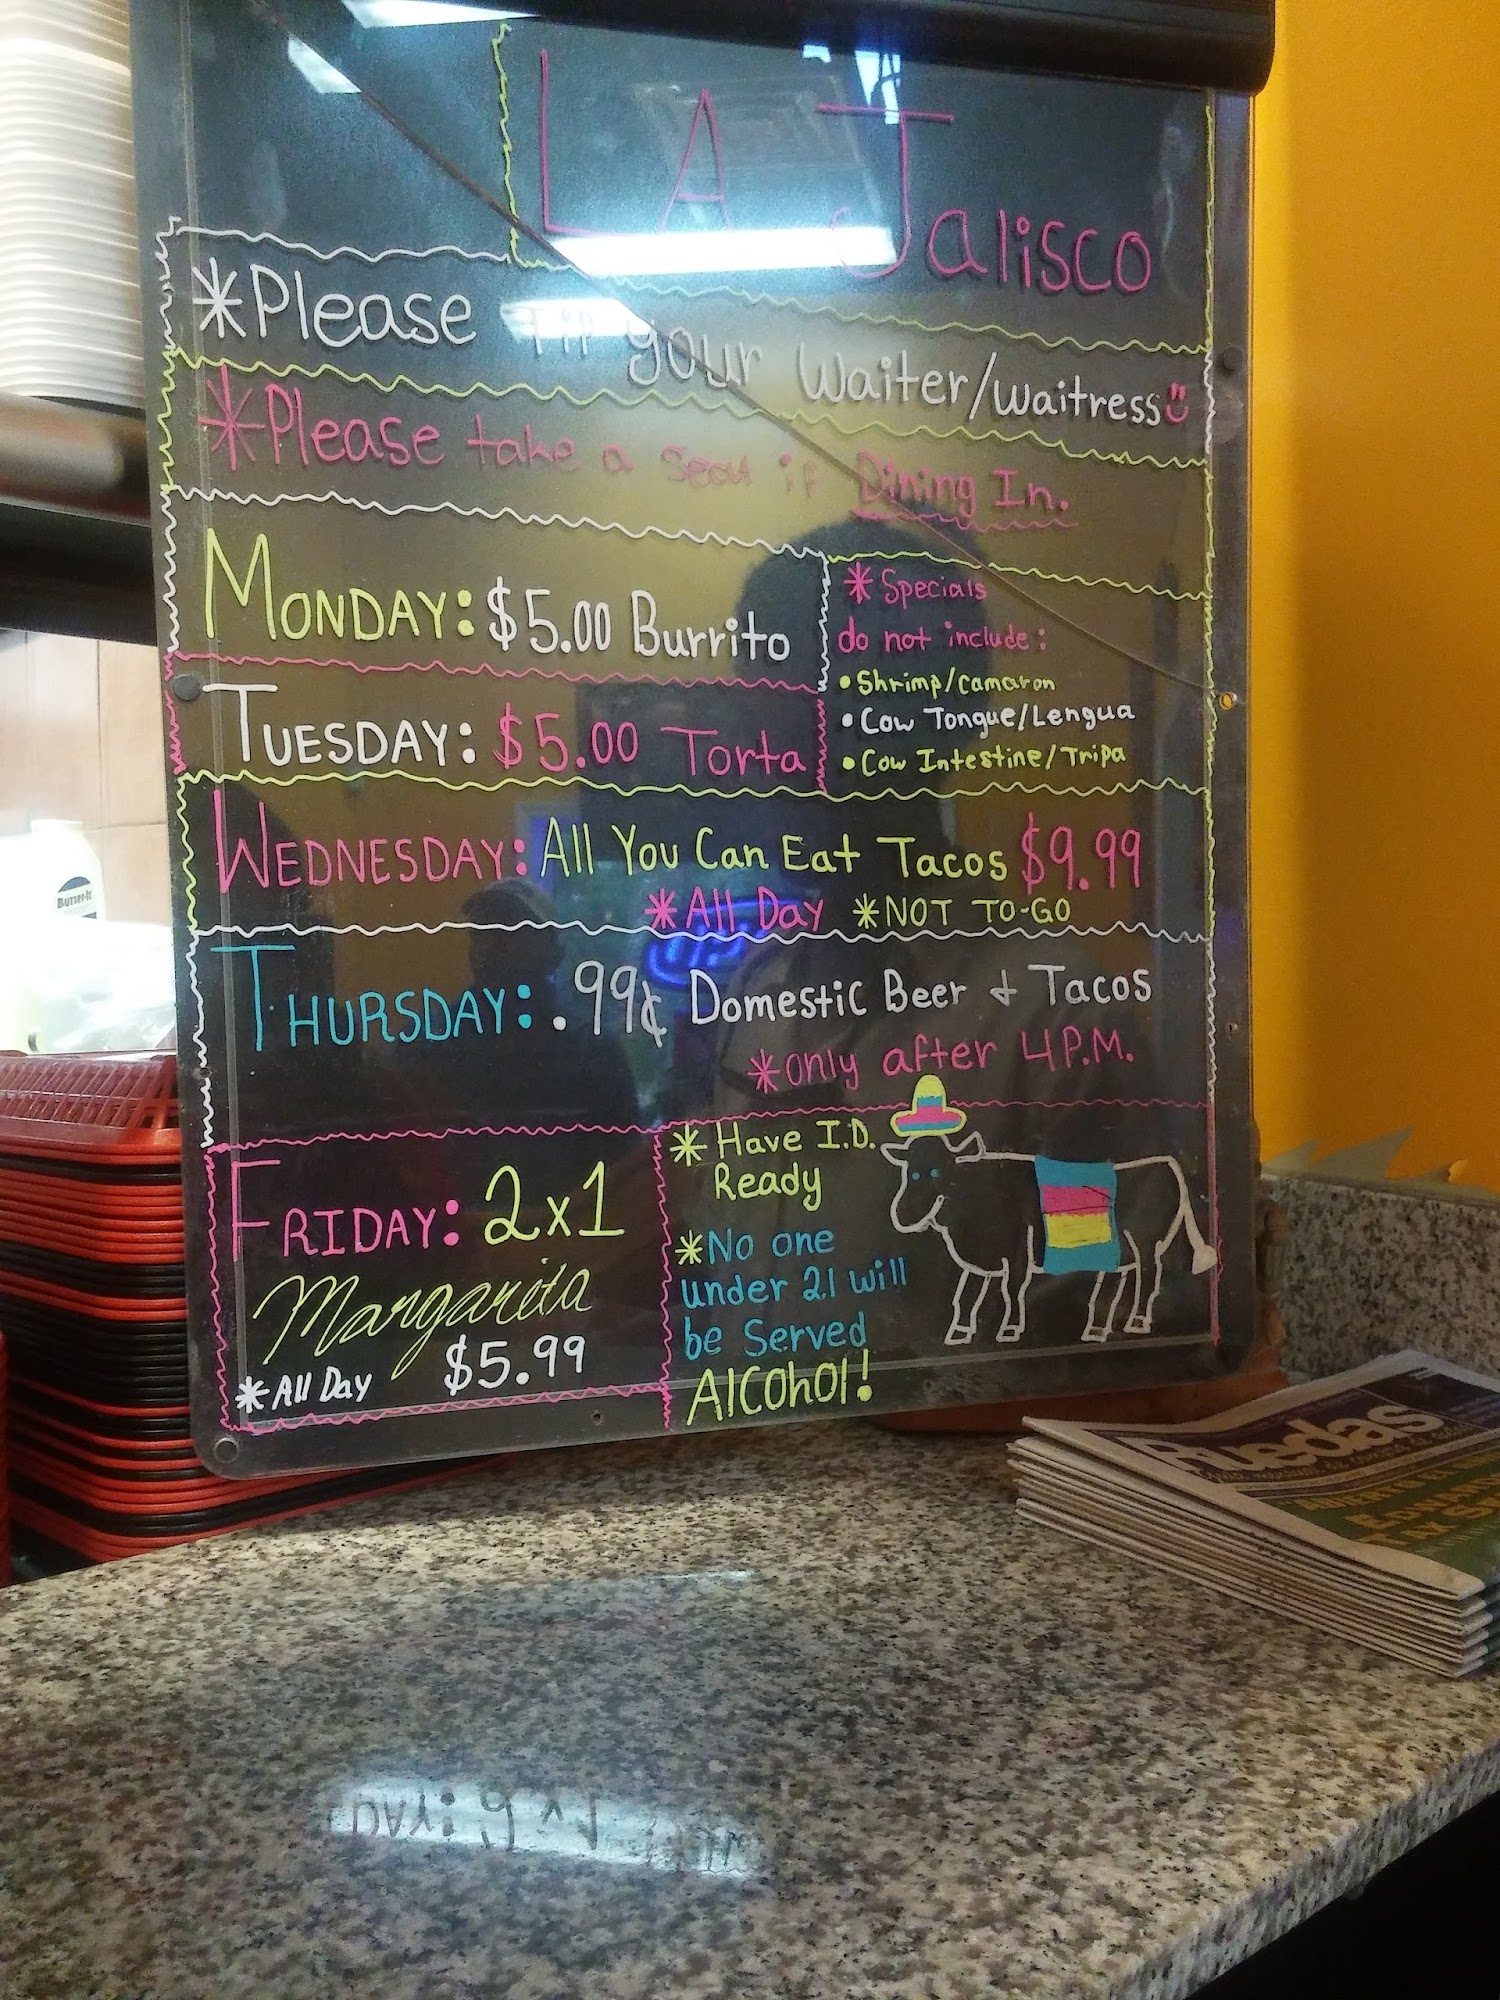 LA Jalisco
*Please Tip your Waiter/Waitress
*Please take a seat if Dining In.
MONDAY: $5.00 Burrito
TUESDAY: $5.00 Torta
* Specials
do not include:
• Shrimp/Camaron
• Cow Tongue/Lengua
• Cow Intestine/Tripa
WEDNESDAY: All You Can Eat Tacos $9.99
*All Day *NOT TO-GO
THURSDAY: .99¢ Domestic Beer & Tacos
*only after 4 P.M.
FRIDAY: 2x1
Margarita
*All Day $5.99
* Have I.D.
Ready
*No one
under 21 will
be Served
Alcohol!
Butter-It
Ruedas